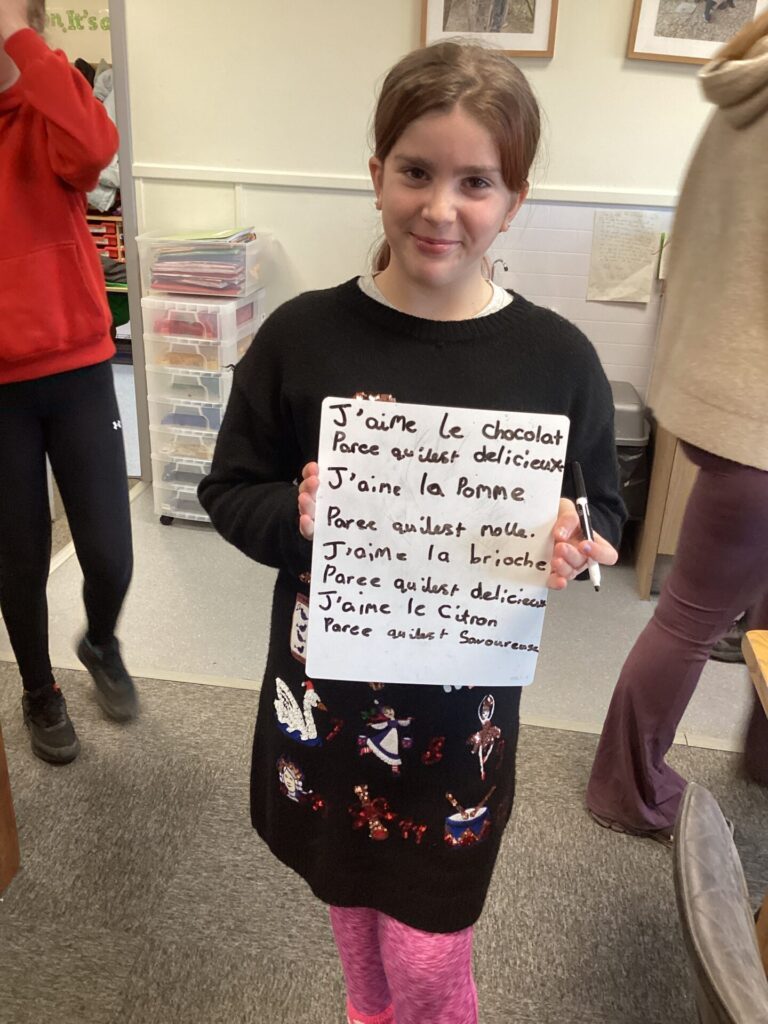 n, It's a
J'aime le chocolat
Parce qu'ilest delicieux
J'aime la Pomme
Parce qu'ilest molle.
J'aime la brioche
Parce qu'ilest delicieux
J'aime le Citron
Parce qu'ilest Savoureuse